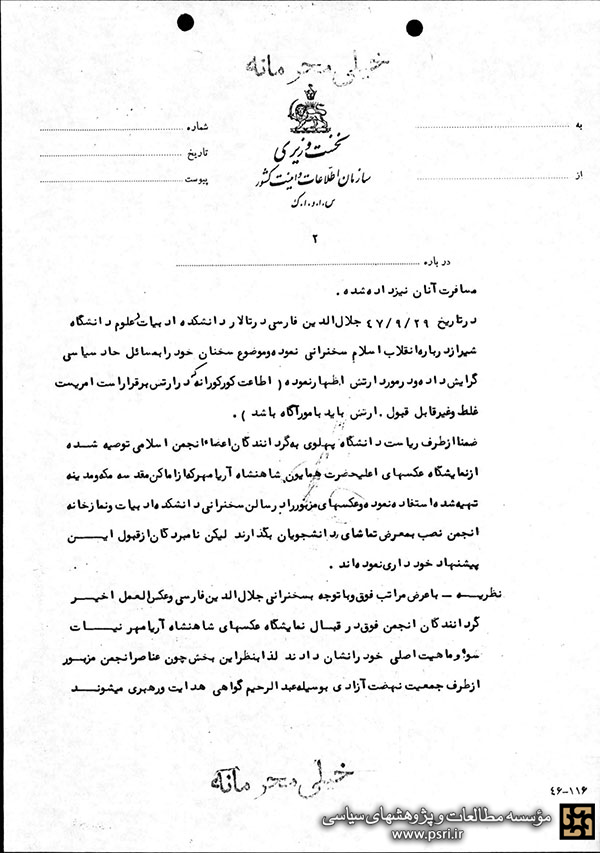 خیلی محرمانه
نخست وزیری
سازمان اطلاعات و امنیت کشور
س.ا.و.ا.ک
به
از
شماره
تاریخ
پیوست
۲
درباره
مسافرت آنان نیز داده شده .
در تاریخ ۴۷/۹/۲۹ جلال الدین فارسی در تالار دانشکده ادبیات و علوم دانشگاه
شیراز درباره انقلاب اسلام سخنرانی نموده و موضوع سخنان خود را به مسائل حاد سیاسی
گرایش داده و در مورد ارتش اظهار نموده ( اطاعت کورکورانه که در ارتش برقرار است امریست
غلط و غیر قابل قبول . ارتش باید با مور آگاه باشد ) .
ضمنا از طرف ریاست دانشگاه پهلوی به گردانندگان اعضاء انجمن اسلامی توصیه شده
از نمایشگاه عکسهای اعلیحضرت همایون شاهنشاه آریامهر که از اماکن مقدسه مکه و مدینه
تهیه شده استفاده نموده و عکسهای مزبور را در سالن سخنرانی دانشکده ادبیات و نمازخانه
انجمن نصب بمعرض تماشای دانشجویان بگذارند لیکن نامبردگان از قبول ایـــن
پیشنهاد خود داری نموده اند .
نظریــه ـ با عرض مراتب فوق و با توجه بسخنرانی جلال الدین فارسی و عکس العمل اخیـر
گردانندگان انجمن فوق در قبال نمایشگاه عکسهای شاهنشاه آریامهر نیـــات
سوء و ماهیت اصلی خود را نشان دادند لذا بنظر این بخش چون عناصر انجمن مزبـور
از طرف جمعیت نهضت آزادی بوسیله عبدالرحیم گواهی هدایت و رهبری میشونــد
خیلی محرمانه
۴۶-۱۱۶
مؤسسه مطالعات و پژوهشهای سیاسی
www.psri.ir